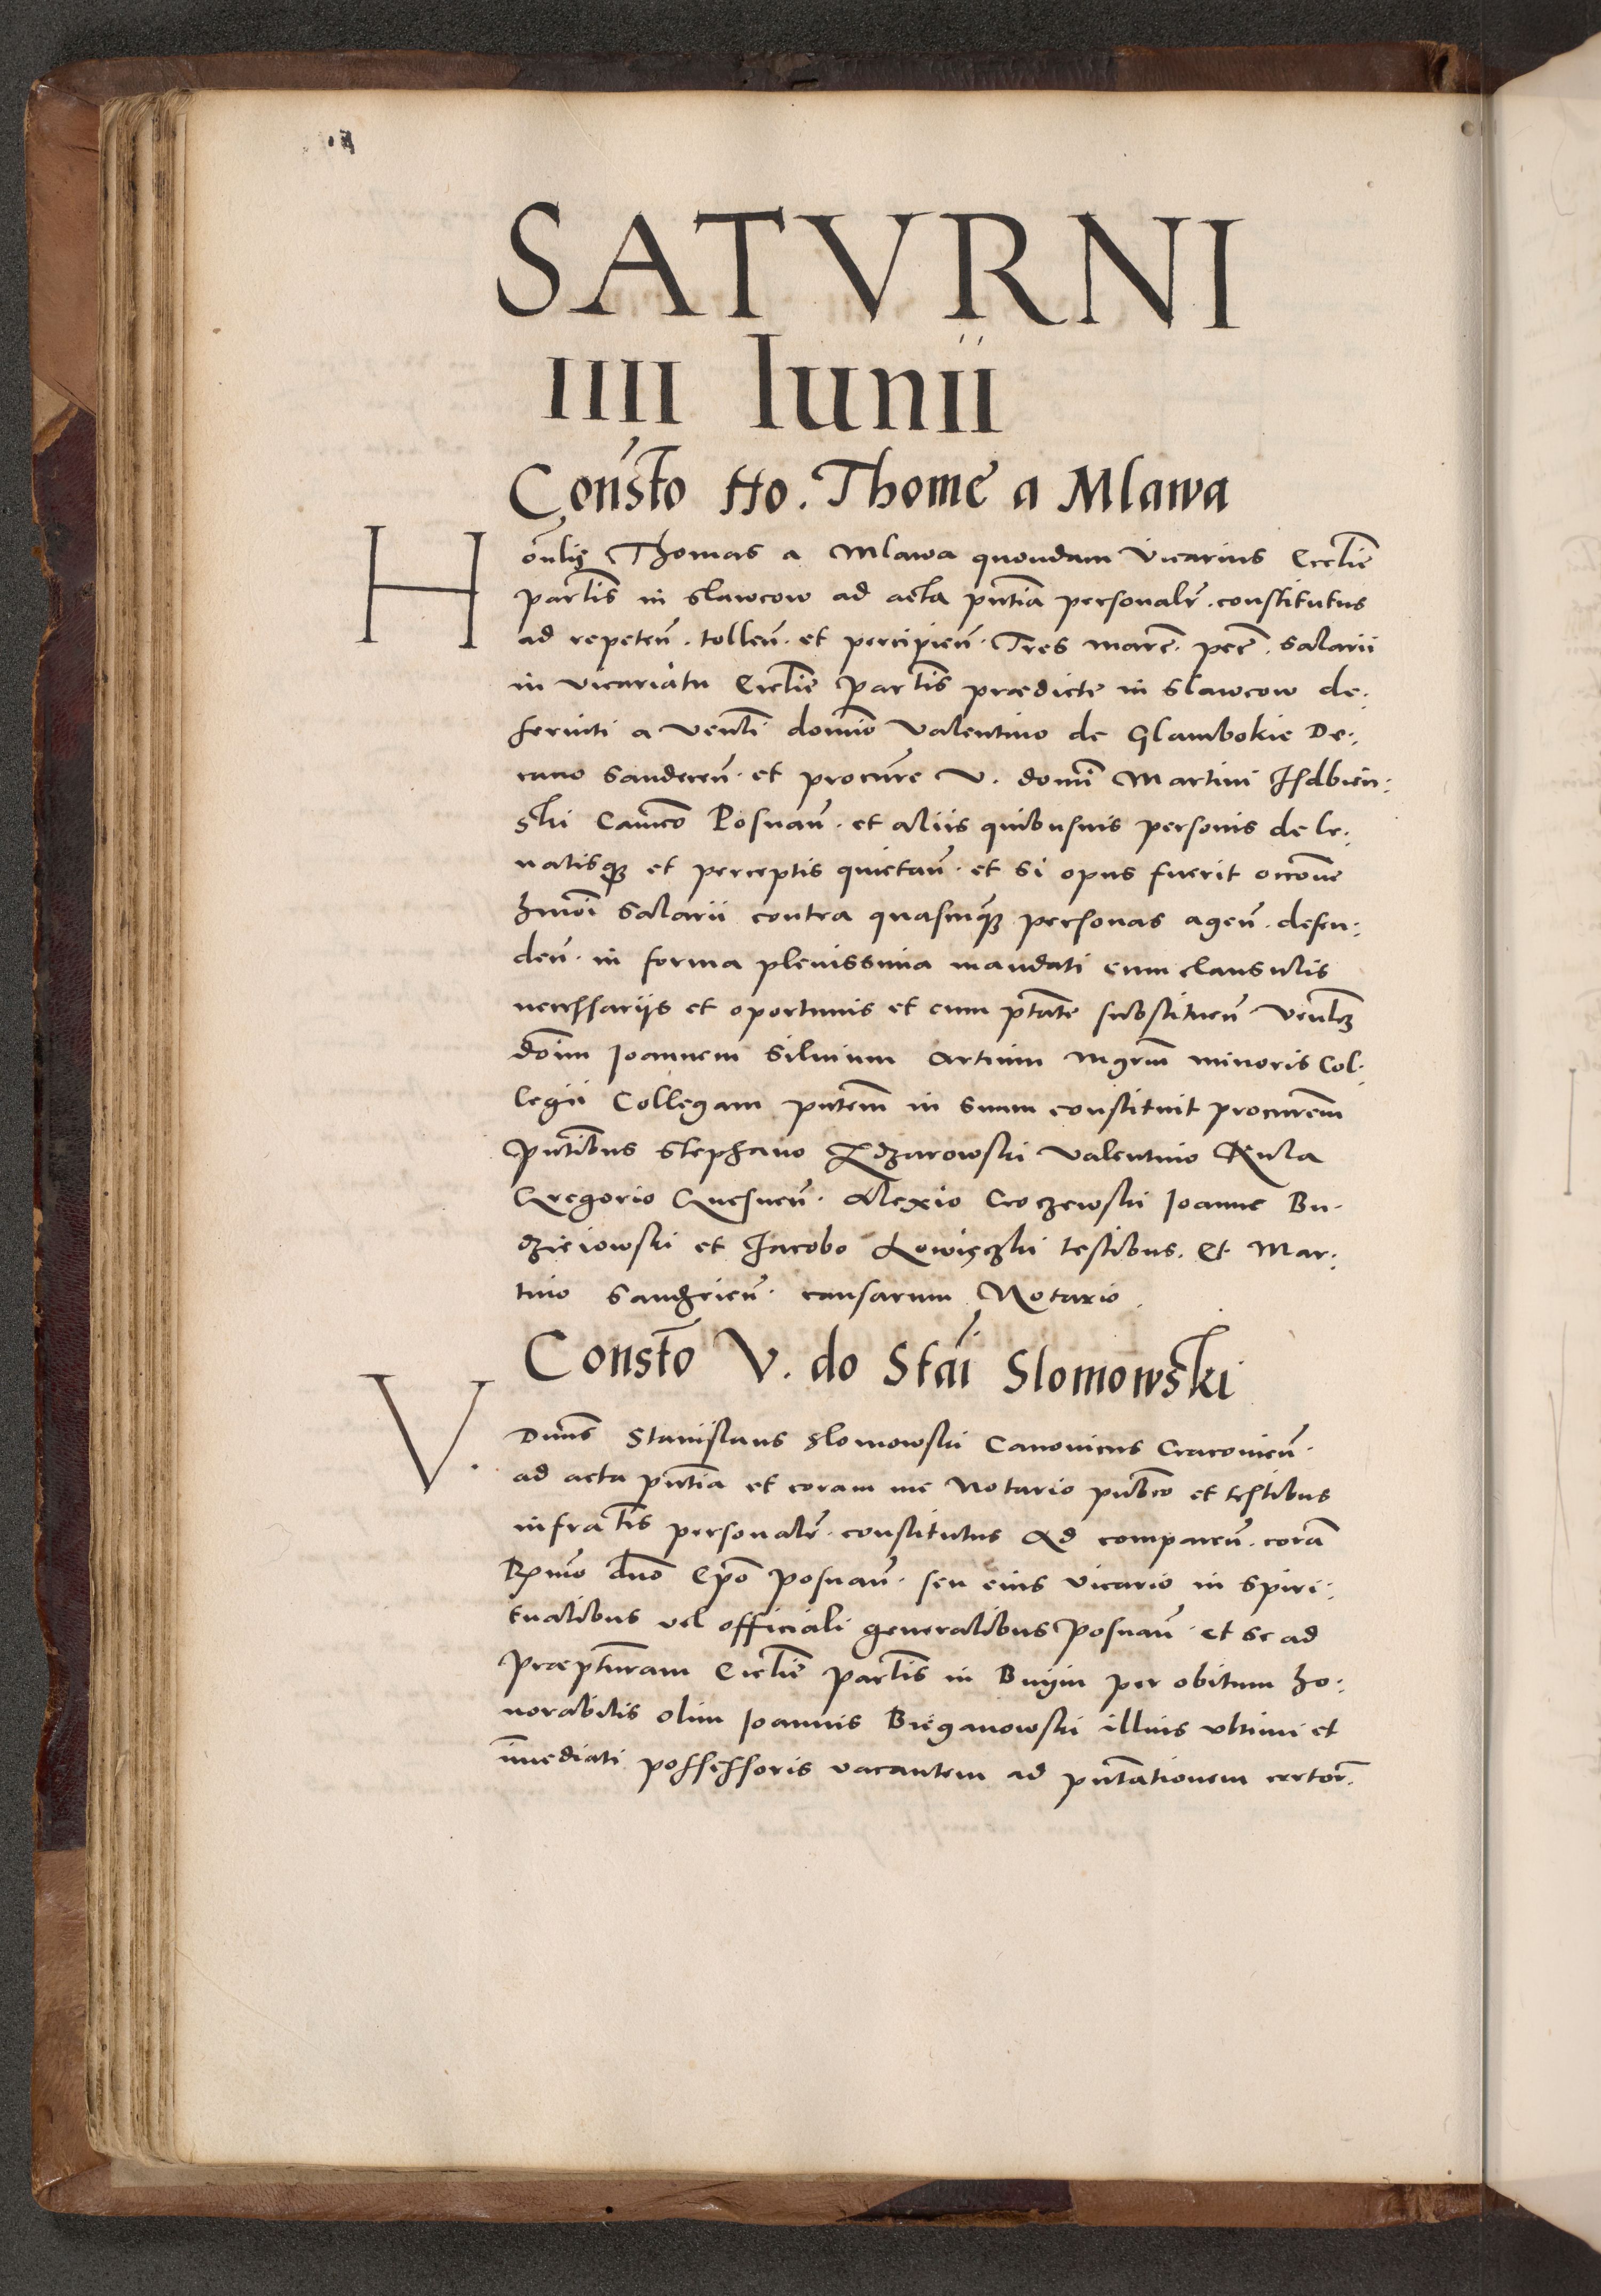 SATVRNI
IIII Iunii
Constō Ho. Thome a Mlawa
Honlis Thomas a Mlawa quondam Vicarius Eccliē
parlis in Slawcow ad acta pntia personalr. constitutus
ad repeten. tollen. et percipien. Tres marc. pec. Salarii
in vicariatu Eccliē parlis prædicte in Slawcow de:
seruiti a Venli domino Valentino de Glambokie De:
cano Sandecen. et procure V. domi Martini Isdbien:
ski Canico Posnan. et aliis quibusuis personis de le:
uatisqȝ et perceptis quietan. et si opus fuerit occōne
hmōi Salarii contra quascūqȝ personas agen. defen:
den. in forma plenissima mandati cum clausulis
necessarijs et oportunis et cum ptate substituen. Venlem
dōim Ioannem Siluium Artium Mgrm minoris Col:
legii Collegam pntem in suum constituit procurem
pntibus Stephano Xdzarowski Valentino Rula
Gregorio Gnesnen. Alexio Croczewski Ioanne Bu-
dzieiowski et Jacobo Lowięczki testibus. Et Mar:
tino causarum Notario.
Constō V. do Stai Slomowski
V. Dnns Stanislaus Slomowski Canonicus Cracouien.
ad acta pntia et coram me Notario pubco et testibus
infratis personalr. constitutus Ad comparen. corā
Rmo dno Epo posnan. seu eius vicario in spiri:
tualibus vel officiali generalibus posnan. et se ad
præpturam Eccliē parlis in Bnijn per obitum ho:
norabilis olim Ioannis Bieganowski illius vltimi et
imediati possessoris vacantem ad pntationem certor.